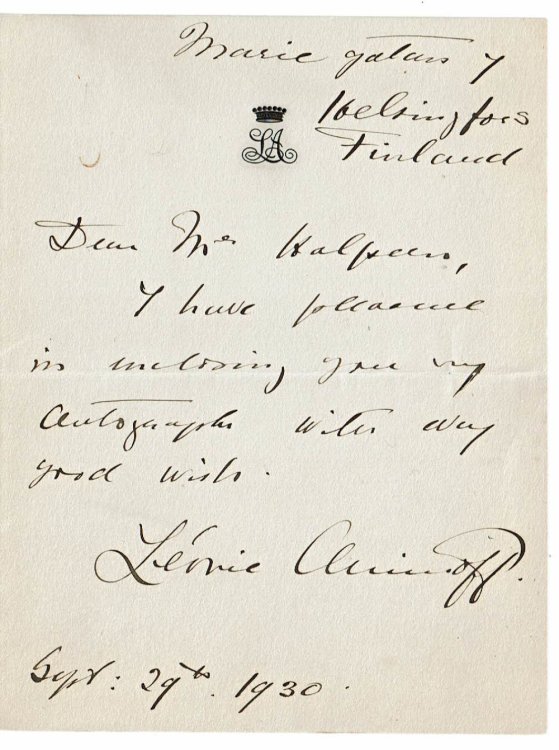 Marie gatan 7
Helsingfors
Finland
LA
Dear Mrs Halpern,
I have pleasure
in inclosing you my
autograph with evry
good wish.
Léonie Aminoff.
Sept: 29th. 1930.